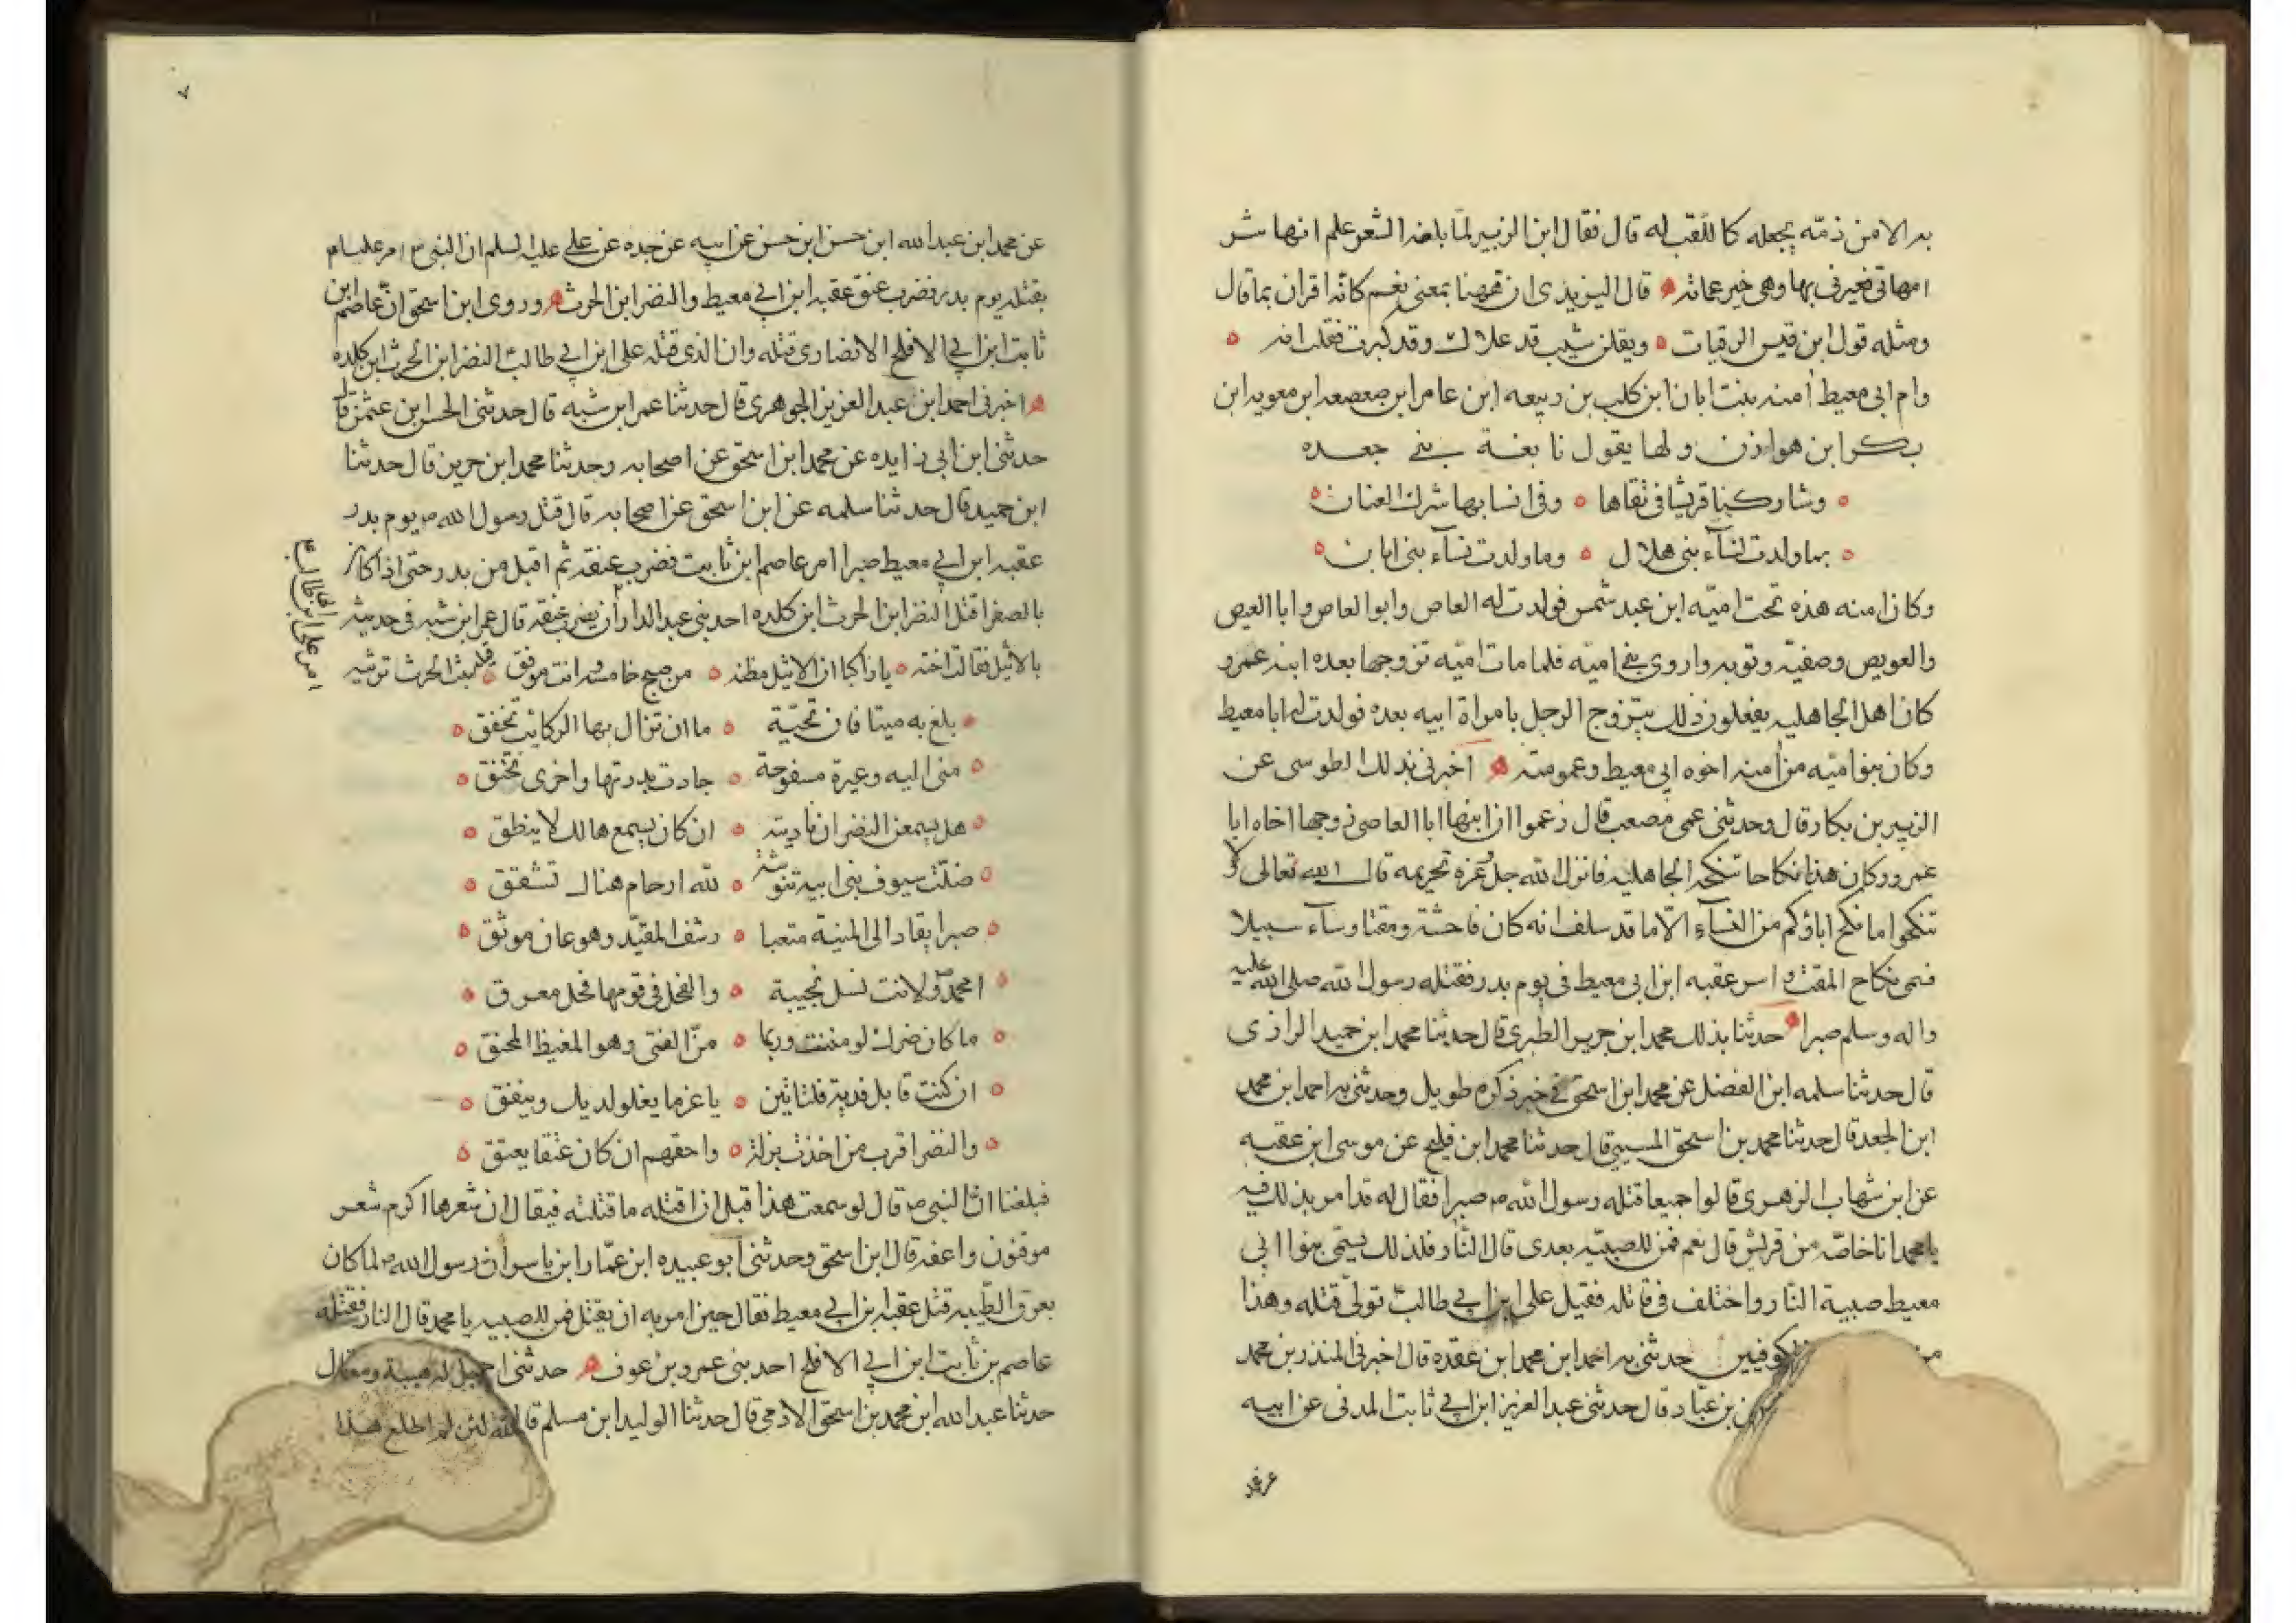 بدا لامن ذمّه يجعله كاللقب له قال فقال ابن الزبير لمّا بلغه الشعر علم انها شر
امهاتي فعيرني بها وهي خير عماته قال اليزيدي ان ههنا بمعنى نعم كانّه اقران بما قال
ومثله قول ابن قيس الرقيات ويقلن شيب قد علاك وقد كبرت فقلت انه
وام ابي معيط آمنه بنت ابان ابن كليب بن ربيعه ابن عامر ابن صعصعه ابن معويه ابن
بكر ابن هوازن ولها يقول نابغة بني جعده
وشاركنا قريشا في تقاها وفي انسابها شرك العنان
بما ولدت نسآء بني هلال وما ولدت نسآء بني ابان
وكان امنه هذه تحت اميّه ابن عبد شمس فولدت له العاص وابو العاص وابا العيص
والعويص وصفيّه وتوبه واروى بني اميّه فلما مات اميّه تزوجها بعده ابنه عمرو
كان اهل الجاهليه يفعلون ذلك يتزوج الرجل بامراة ابيه بعده فولدت له ابا معيط
وكان بنو اميّه من امنه اخوه ابي معيط وعمومته اخبرني بذلك الطوسي عن
الزبير بن بكار قال وحدثني عمي مصعب قال زعموا ان ابنها ابا العاصي زوجها اخاه ابا
عمرو وكان هذا نكاحا تنكحه الجاهليه فانزل الله جل وعز تحريمه قال الله تعالى ولا
تنكحوا ما نكح اباؤكم من النسآء الّا ما قد سلف انه كان فاحشة ومقتا وسآء سبيلا
فسمى نكاح المقت واسر عقبه ابن ابي معيط في يوم بدر فقتله رسول الله صلى الله عليه
واله وسلم صبرا حدثنا بذلك محمد ابن جرير الطبري قال حدثنا محمد ابن حميد الرازي
قال حدثنا سلمه ابن الفضل عن محمد ابن اسحق في خبر ذكره طويل وحدثني به احمد ابن محمد
ابن الجعد قال حدثنا محمد بن اسحق المسيبي قال حدثنا محمد ابن فليح عن موسى ابن عقبه
عن ابن شهاب الزهري قالوا جميعا قتله رسول الله ص صبرا فقال له قد امر بذلك فيه
يا محمد انا خاصّه من قريش قال نعم فمن للصبيّه بعدي قال النار فلذلك يسمى بنوا ابي
معيط صبية النار واختلف في قاتله فقيل علي ابن ابي طالب تولّى قتله وهذا
من الكوفيين حدثني به احمد ابن محمد ابن عقده قال اخبرني المنذر بن محمد
بن عبّاد قال حدثني عبد العزيز ابن ابي ثابت المدني عن ابيه
عن محمد
عن محمد ابن عبد الله ابن حسن ابن حسن عن ابيه عن جده عن علي عليه السلم ان النبي ص امر عليا م
بقتله يوم بدر فضرب عنق عقبه ابن ابي معيط والنضر ابن الحرث وروى ابن اسحق انّ عاصم ابن
ثابت ابن ابي الافلح الانصاري قتله وان الذي قتله علي ابن ابي طالب النضر ابن الحرث ابن كلده
اخبرني احمد ابن عبد العزيز الجوهري قال حدثنا عمر ابن شبه قال حدثني الحسن ابن عثمن قال
حدثني ابن ابي زايده عن محمد ابن اسحق عن اصحابه وحدثنا محمد ابن جرير قال حدثنا
ابن حميد قال حدثنا سلمه عن ابن اسحق عن اصحابه قال قتل رسول الله ص يوم بدر
عقبه ابن ابي معيط صبرا امر عاصم ابن ثابت فضرب عنقه ثم اقبل من بدر حتى اذا كان
بالصفرا قتل النضر ابن الحرث ابن كلده احد بني عبد الدار أن يضرب عنقه قال عمر ابن شبه في حديثه
امر علي ابن ابي طالب ع
بالاثيل فقالت اخته يا راكبا ان الاثيل مظنه من صبح خامسه وانت موفق قتيلة بنت الحرث ترثيه
بلغ به ميتا فان تحيّة ما ان تزال بها الركائب تخفق
مني اليه وعبرة مسفوحة جادت بدرتها واخرى تخنق
هل يسمعن النضر ان ناديته ان كان يسمع هالك لا ينطق
ضلّت سيوف بني ابيه تنوشه لله ارحام هناك تشقق
صبرا يقاد الى المنية متعبا رسف المقيّد وهو عان موثق
امحمّد ولانت نسل نجيبة والفحل في قومها فحل معرق
ما كان ضرك لو مننت وربما منّ الفتى وهو المغيظ المحنق
ان كنت قابل فدية فلناتين باعز ما يغلو لديك وينفق
والنضر اقرب من اخذت بزلة واحقهم ان كان عتقا يعتق
فبلغنا انّ النبي ص قال لو سمعت هذا قبل ان اقتله ما قتلته فيقال ان شعرها اكرم شعر
موتور واعفه قال ابن اسحق وحدثني ابو عبيده ابن محمّد ابن عمّار ابن ياسر ان رسول الله ص لما كان
بعرق الظبيه قتل عقبه ابن ابي معيط فقال حين امر به ان يقتل فمن للصبيه يا محمد قال النار فقتله
عاصم بن ثابت ابن ابي الافلح احد بني عمرو بن عوف حدثني
حدثنا عبد الله ابن محمد بن اسحق الادمي قال حدثنا الوليد ابن مسلم قال